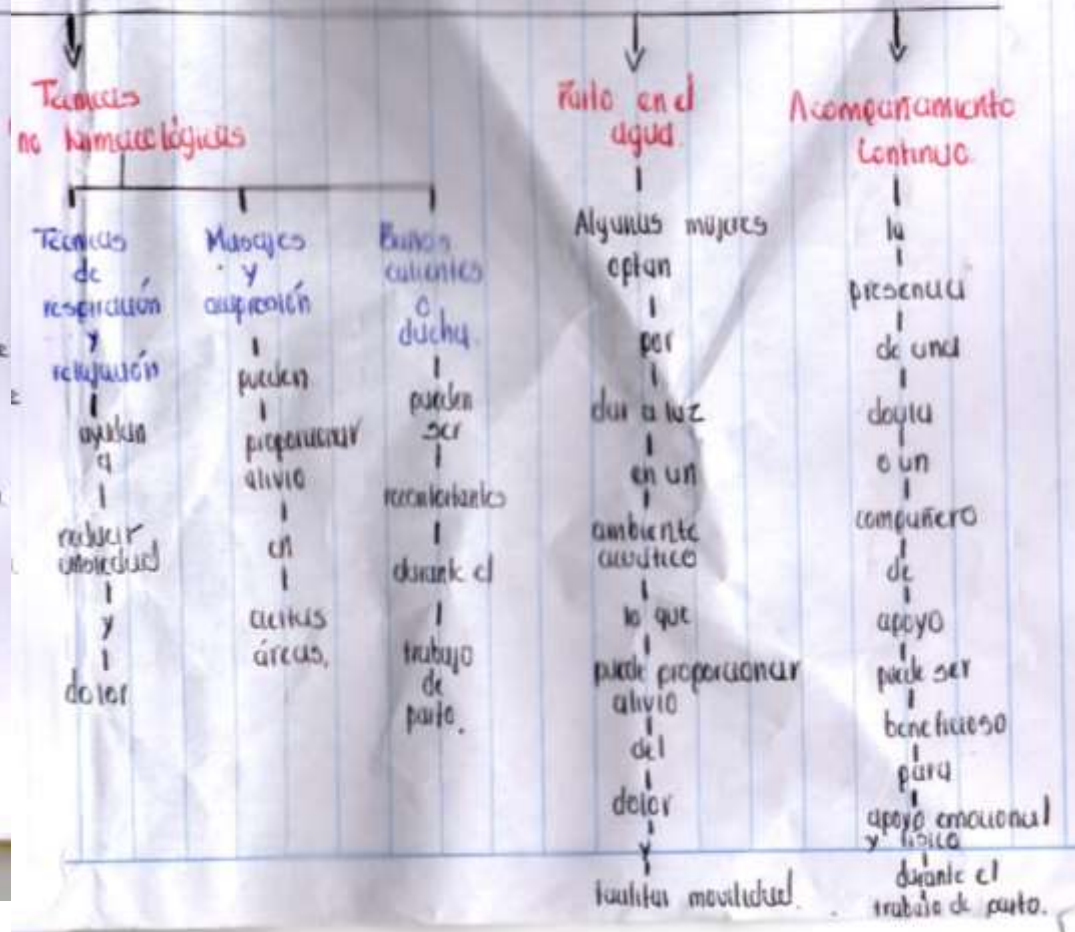 Técnicas
no farmacológicas
Técnicas
de
respiración
y
relajación
ayudan
a
reducir
ansiedad
y
dolor
Masajes
y
acupresión
pueden
proporcionar
alivio
en
ciertas
áreas,
Baños
calientes
o
ducha.
pueden
ser
reconfortantes
durante el
trabajo
de
parto.
Parto en el
agua
Algunas mujeres
optan
por
dar a luz
en un
ambiente
acuático
lo que
puede proporcionar
alivio
del
dolor
y
facilitar movilidad.
Acompañamiento
Continuo
la
presencia
de una
doula
o un
compañero
de
apoyo
puede ser
beneficioso
para
apoyo emocional
y físico
durante el
trabajo de parto.